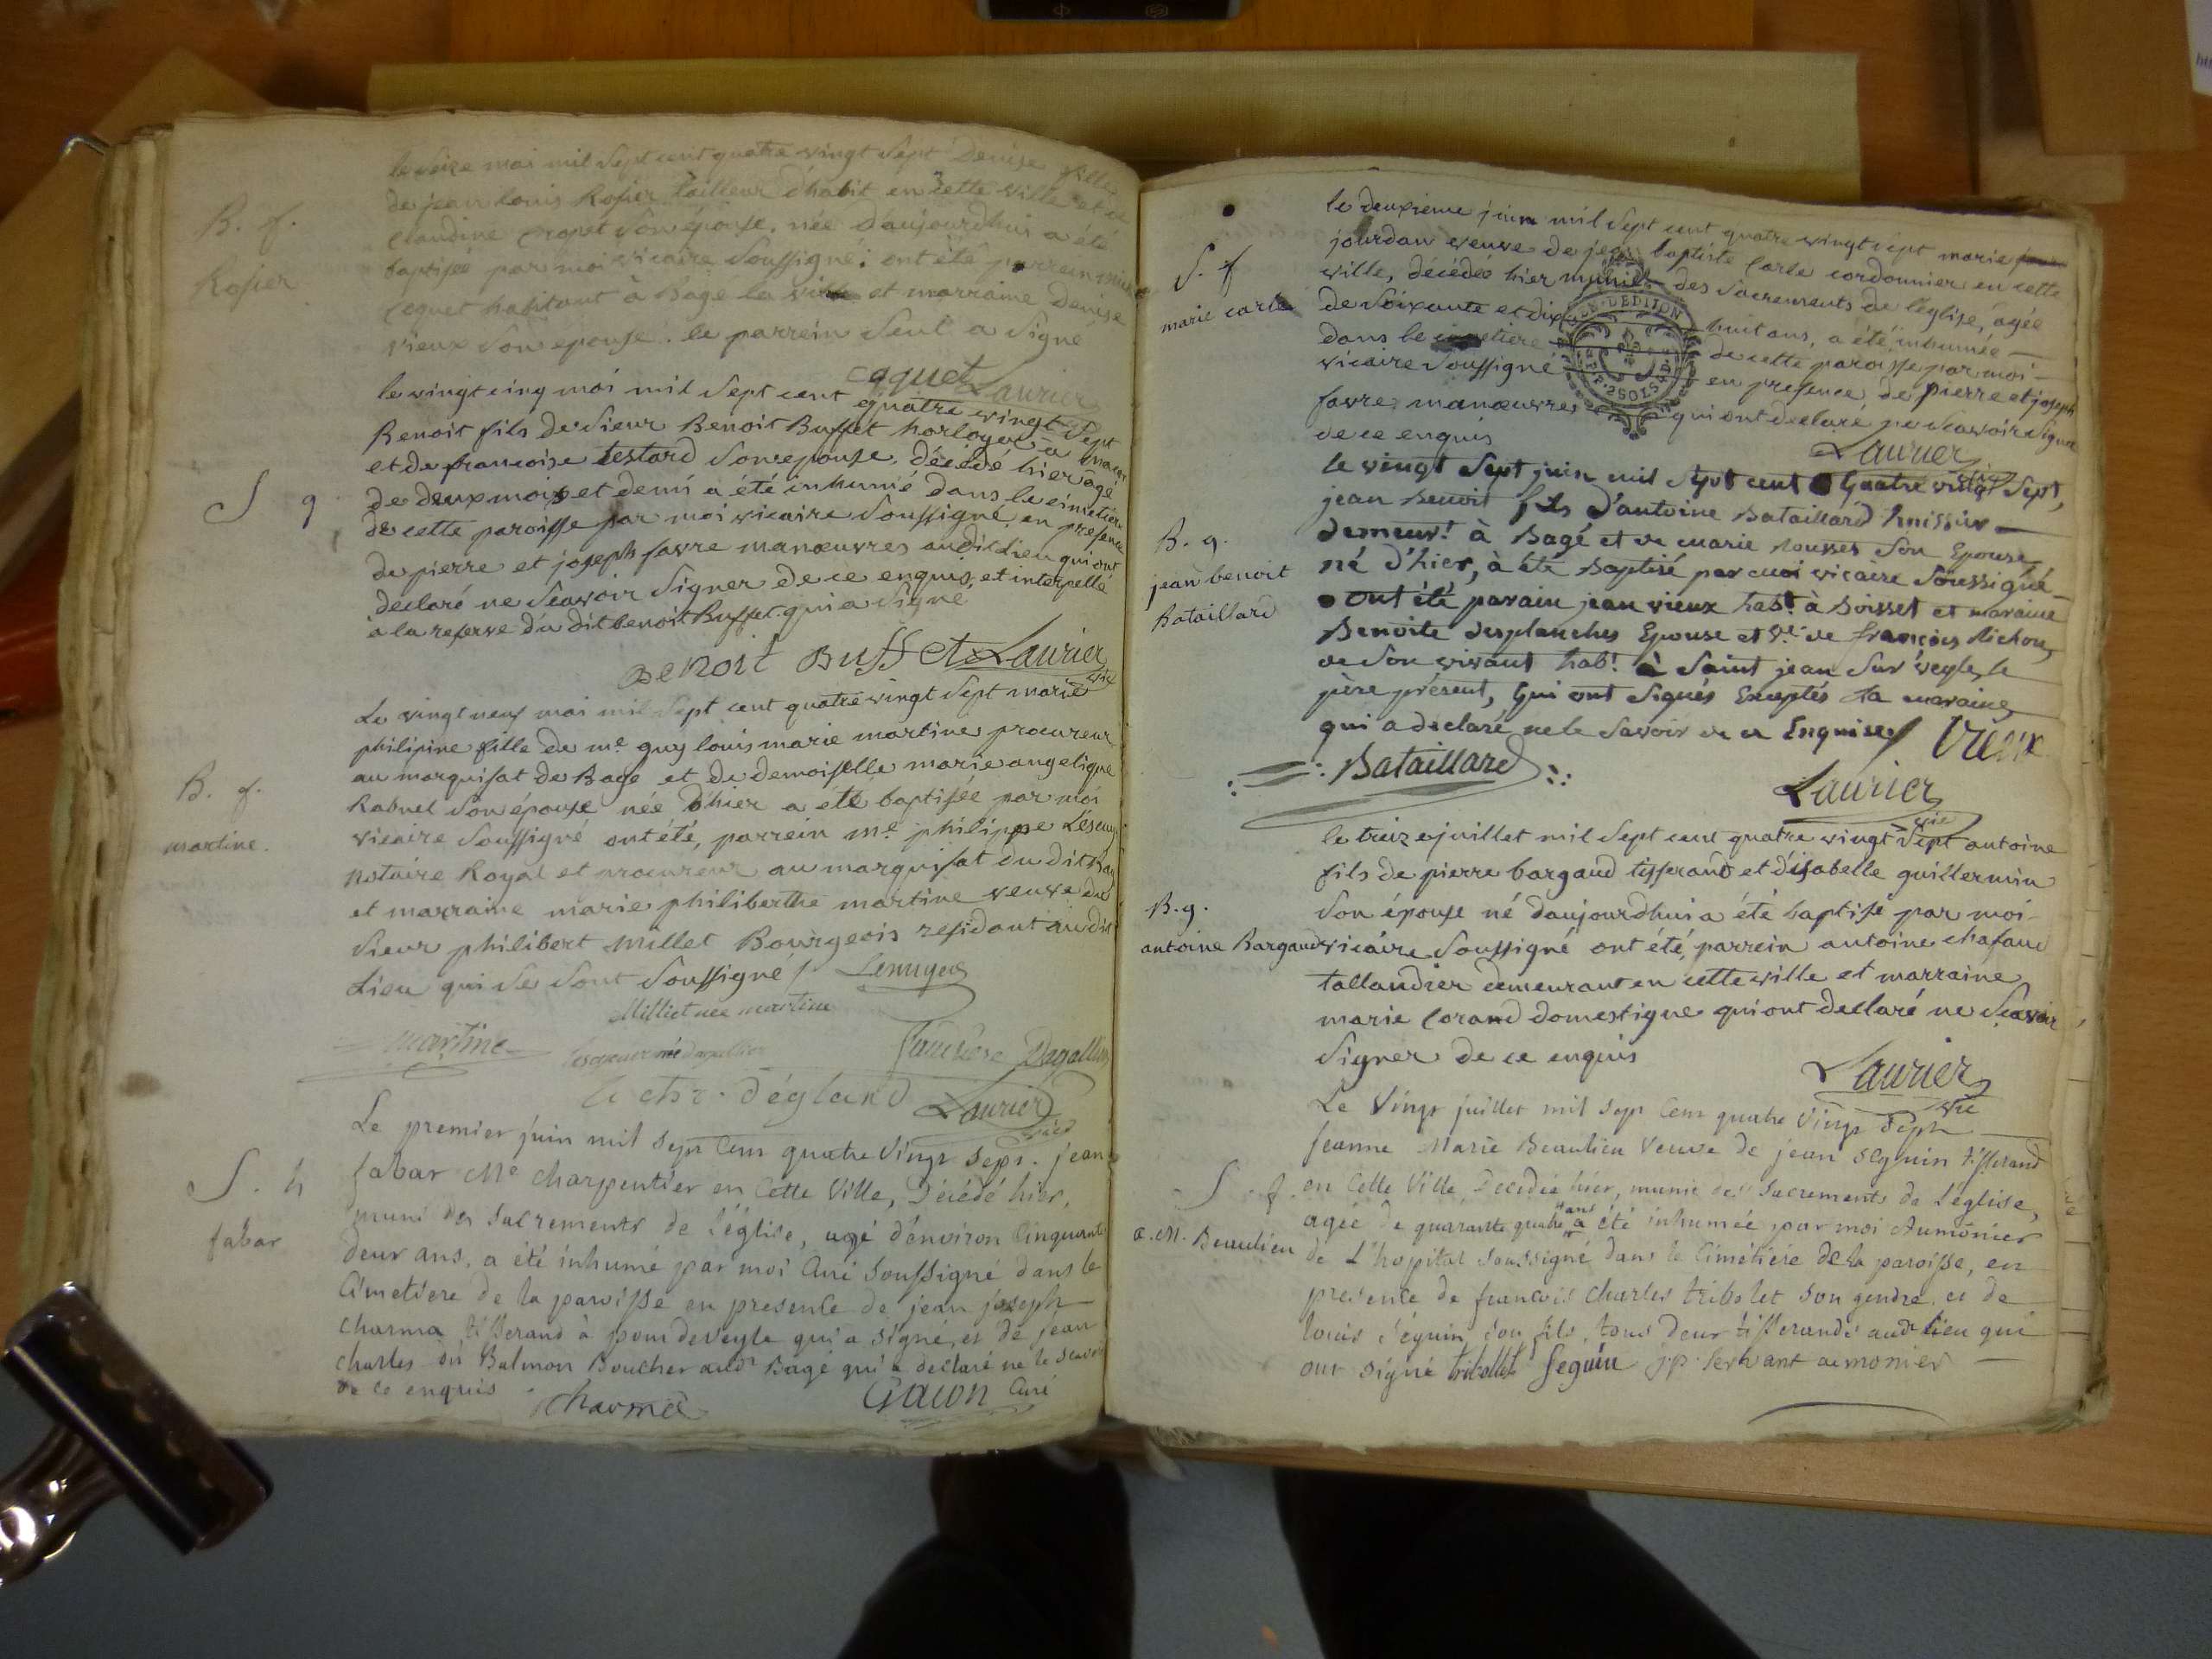 B. f.
Rosier
le seize mai mil sept cent quatre vingt sept Denise fille
de jean louis Rosier tailleur d'habit en cette ville et de
claudine coquet son épouse, née d'aujourdhui a été
baptisée par moi vicaire soussigné; ont été parrein
coquet habitant à Bagé la ville et marraine Denise
vieux son epouse. le parrein seul a signé
coquet Laurier
S g
le vingt cinq mai mil sept cent quatre vingt sept
Benoit fils de sieur Benoit Buffet horloger à macon
et de francoise testard son epouse, décédé hier agé
de deux mois et demi a été inhumé dans le cimetiere
de cette paroisse par moi vicaire soussigné, en presence
de pierre et joseph favre manœuvres audit lieu qui ont
declaré ne sçavoir signer de ce enquis, et interpellé
a la reserve du dit benoit Buffet qui a signé
Benoit Buffet Laurier
vic
B. f.
martine.
Le vingt neuf mai mil sept cent quatre vingt sept marie
philipine fille de me guy louis marie martine procureur
au marquisat de Bagé et de demoiselle marie angelique
Rabuel son épouse née d'hier a été baptisée par moi
vicaire soussigné ont été, parrein me philippe
notaire Royal et procureur au marquisat du dit Bagé
et marraine marie philiberthe martine veuve de
sieur philibert millet Bourgeois residant au dit
Lieu qui se sont soussigné
Milliet nee martine
martine
d'égland Laurier
vic
S. h
fabar
Le premier juin mil sept cent quatre vingt sept. jean
fabar Me charpentier en cette Ville, Décédé hier,
muni des sacrements de l'église, agé d'environ cinquante
deux ans, a été inhumé par moi curé soussigné dans le
cimetiere de la paroisse en presence de jean joseph
charma tisserand à pondeveyle qui a signé et de jean
charles Balmon Boucher audt Bagé qui a declaré ne le scavoir
de ce enquis charma Gacon curé
S. f
marie carle
le deuxieme juin mil sept cent quatre vingt sept marie
jourdan veuve de jean baptiste carle cordonnier en cette
ville, décédée hier munie des sacrements de l'église, agée
de soixante et dix huit ans, a été inhumée
dans le cimetiere de cette paroisse par moi
vicaire soussigné en presence de pierre et joseph
favre manœuvres qui ont declaré ne scavoir signer
de ce enquis
Laurier
vic
B. g.
jean benoit
Bataillard
le vingt sept juin mil sept cent Quatre vingt sept,
jean Benoit fils d'antoine Bataillard huissier
demeurt à Bagé et de marie rousset son Epouse
né d'hier, à été Baptisé par moi vicaire soussigné
ont été parain jean vieux habt à Boisset et maraine
Benoite desplanches Epouse et Ve de françois Michon,
de son vivant habt à saint jean sur veyle, le
père présent, Qui ont signés Exceptés la maraine
qui a declaré ne le savoir de ce Enquise Vieux
Bataillard
Laurier
vic
B. g.
antoine Bargaud
le treize juillet mil sept cent quatre vingt sept antoine
fils de pierre bargaud tisserand et d'isabelle guillermin
son épouse né d'aujourdhui a été baptisé par moi
vicaire soussigné ont été, parrein antoine chafaud
tallandier demeurant en cette ville et marraine
marie corand domestique qui ont declaré ne scavoir
signer de ce enquis
Laurier
vic
S. f.
J. M. Beaulieu
Le vingt juillet mil sept cent quatre vingt sept
jeanne Marie Beaulieu Veuve de jean seguin tisserand
en cette Ville Decedée hier, munie des sacrements de l'église,
agée de quarante quatre ans a été inhumée par moi Aumônier
de L'hopital soussigné dans le cimétiére de la paroisse, en
presence de francois charles tribolet son gendre, et de
louis séguin son fils, tous deux tisserands audt lieu qui
ont signé tribollet seguin j.p. servant aumonier